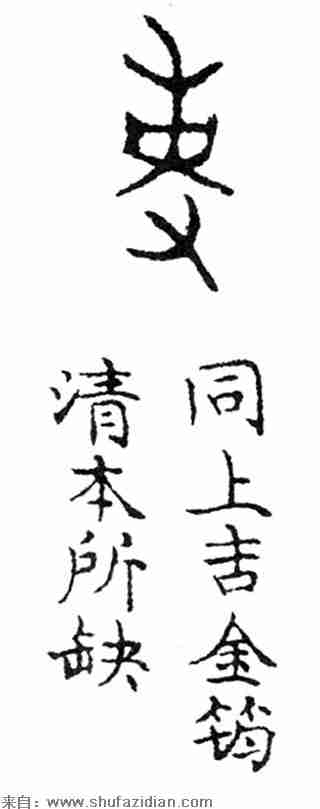 同上吉金筠
清本所缺
来自：www.shufazidian.com